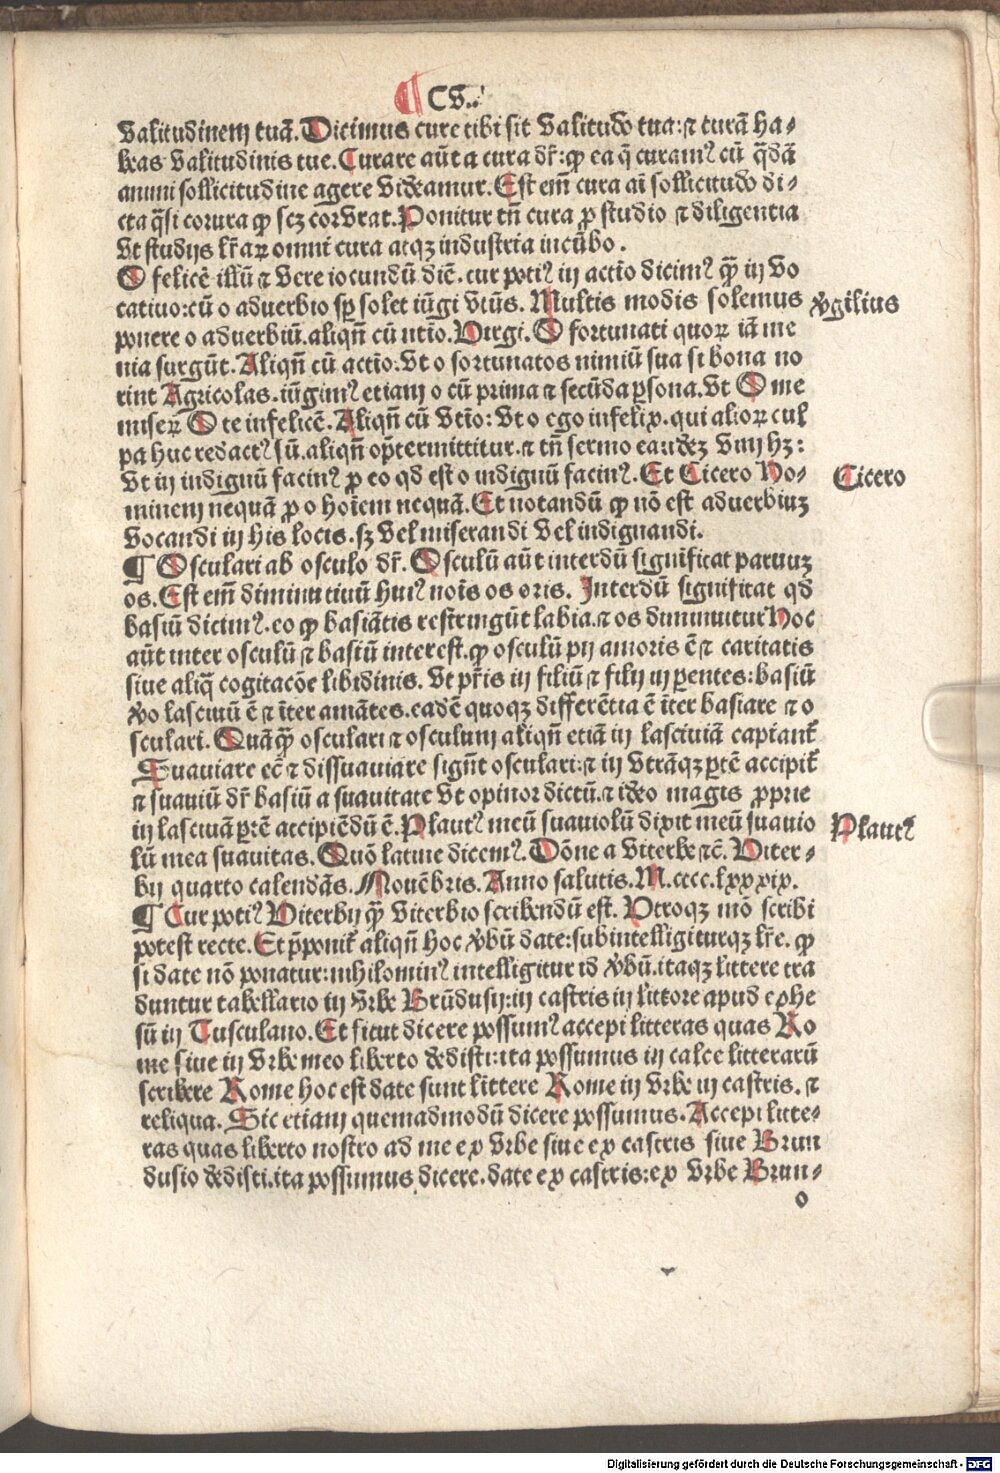 ¶ CV.
Valitudinem tuā. Dicimus cure tibi sit Valitudo tua: ⁊ curā ha⸗
beas Valitudinis tue. Curare aūt a cura dr̄: ꝙ ea q̄ curamꝰ cū q̄dā
animi sollicitudine agere Videamur. Est em̄ cura aī sollicitudo di⸗
cta q̄si corura ꝙ scꝫ cor Vrat. Ponitur tn̄ cura ꝓ studio ⁊ diligentia
Vt studijs lr̄aꝝ omni cura atqꝫ industria incūbo.
O felicē illū ⁊ Vere iocundū diē. cur potiꝰ in actīo dicimꝰ qꝫ̄ in Vo
catiuo: cū o aduerbio sp̄ solet iūgi Vtūs. Multis modis solemus
ponere o aduerbiū. aliqn̄ cū ntīo. Virgi. O fortunati quoꝝ iā me
nia surgūt. Aliqn̄ cū actīo. Vt o fortunatos nimiū sua si bona no
rint Agricolas. iūgimꝰ etiam o cū prima ⁊ secūda ꝑsona. Vt O me
miseꝝ O te infelicē. Aliqn̄ cū Vtīo: Vt o ego infelix. qui alioꝝ cul
pa huc redactꝰ sū. aliqn̄ o p̄termittitur. ⁊ tn̄ sermo eandeꝫ Vim hꝫ:
Vt in indignū facinꝰ ꝓ eo qd̄ est o indignū facinꝰ. Et Cicero Ho⸗
minem nequā ꝓ o hoīem nequā. Et notandū ꝙ nō est aduerbiuꝫ
Vocandi in his locis. sꝫ Vel miserandi Vel indignandi.
¶ Osculari ab osculo dr̄. Osculū aūt interdū significat paruuꝫ
os. Est em̄ diminutiuū huiꝰ nois̄ os oris. Interdū significat qd̄
basiū dicimꝰ. eo ꝙ basiātis restringūt labia. ⁊ os diminuitur Hoc
aūt inter osculū ⁊ basiū interest. ꝙ osculū pij amoris ē ⁊ caritatis
sine aliq̄ cogitacōe libidinis. Vt pr̄is in filiū ⁊ filij in ꝑentes: basiū
ꝟo lasciuū ē ⁊ īter amātes. eadē quoqꝫ differētia ē īter basiare ⁊ o
sculari. Quāqꝫ̄ osculari ⁊ osculum aliqn̄ etiā in lasciuiā capiant᷑
Suauiare ec̄ ⁊ dissuauiare signt̄ osculari: ⁊ in Vtrāqꝫ ꝑtē accipit᷑
⁊ suauiū dr̄ basiū a suauitate Vt opinor dictū. ⁊ ideo magis ꝓprie
in lasciuā ꝑtē accipiēdū ē. Plautꝰ meū suauiolū dixit meū suauio
lū mea suauitas. Quō latine dicemꝰ. Dōne a Viterbe ⁊c̄. Viter⸗
bij quarto calendās. Nouēbris. Anno salutis. M.cccc.lxxxix.
¶ Cur potiꝰ Viterbij qꝫ̄ Viterbio scribendū est. Vtroqꝫ mō scribi
potest recte. Et p̄ponit᷑ aliqn̄ hoc ꝟbū date: subintelligiturqꝫ lr̄e. ꝙ
si date nō ponatur: nihilominꝰ intelligitur id ꝟbū. itaqꝫ littere tra
duntur tabellario in Vrbe Brūdusij: in castris in littore apud ephe
sū in Tusculano. Et sicut dicere possumꝰ accepi litteras quas Ro
me siue in Vrbe meo liberto dedisti: ita possumus in calce litterarū
scribere Rome hoc est date sunt littere Rome in Vrbe in castris. ⁊
reliqua. Sic etiam quemadmodū dicere possumus. Accepi litte⸗
ras quas liberto nostro ad me ex Vrbe siue ex castris siue Brun
dusio dedisti. ita possumus dicere. date ex castris: ex Vrbe Brun⸗
o
ꝟgilius
Cicero
Plautꝰ
Digitalisierung gefördert durch die Deutsche Forschungsgemeinschaft - DFG